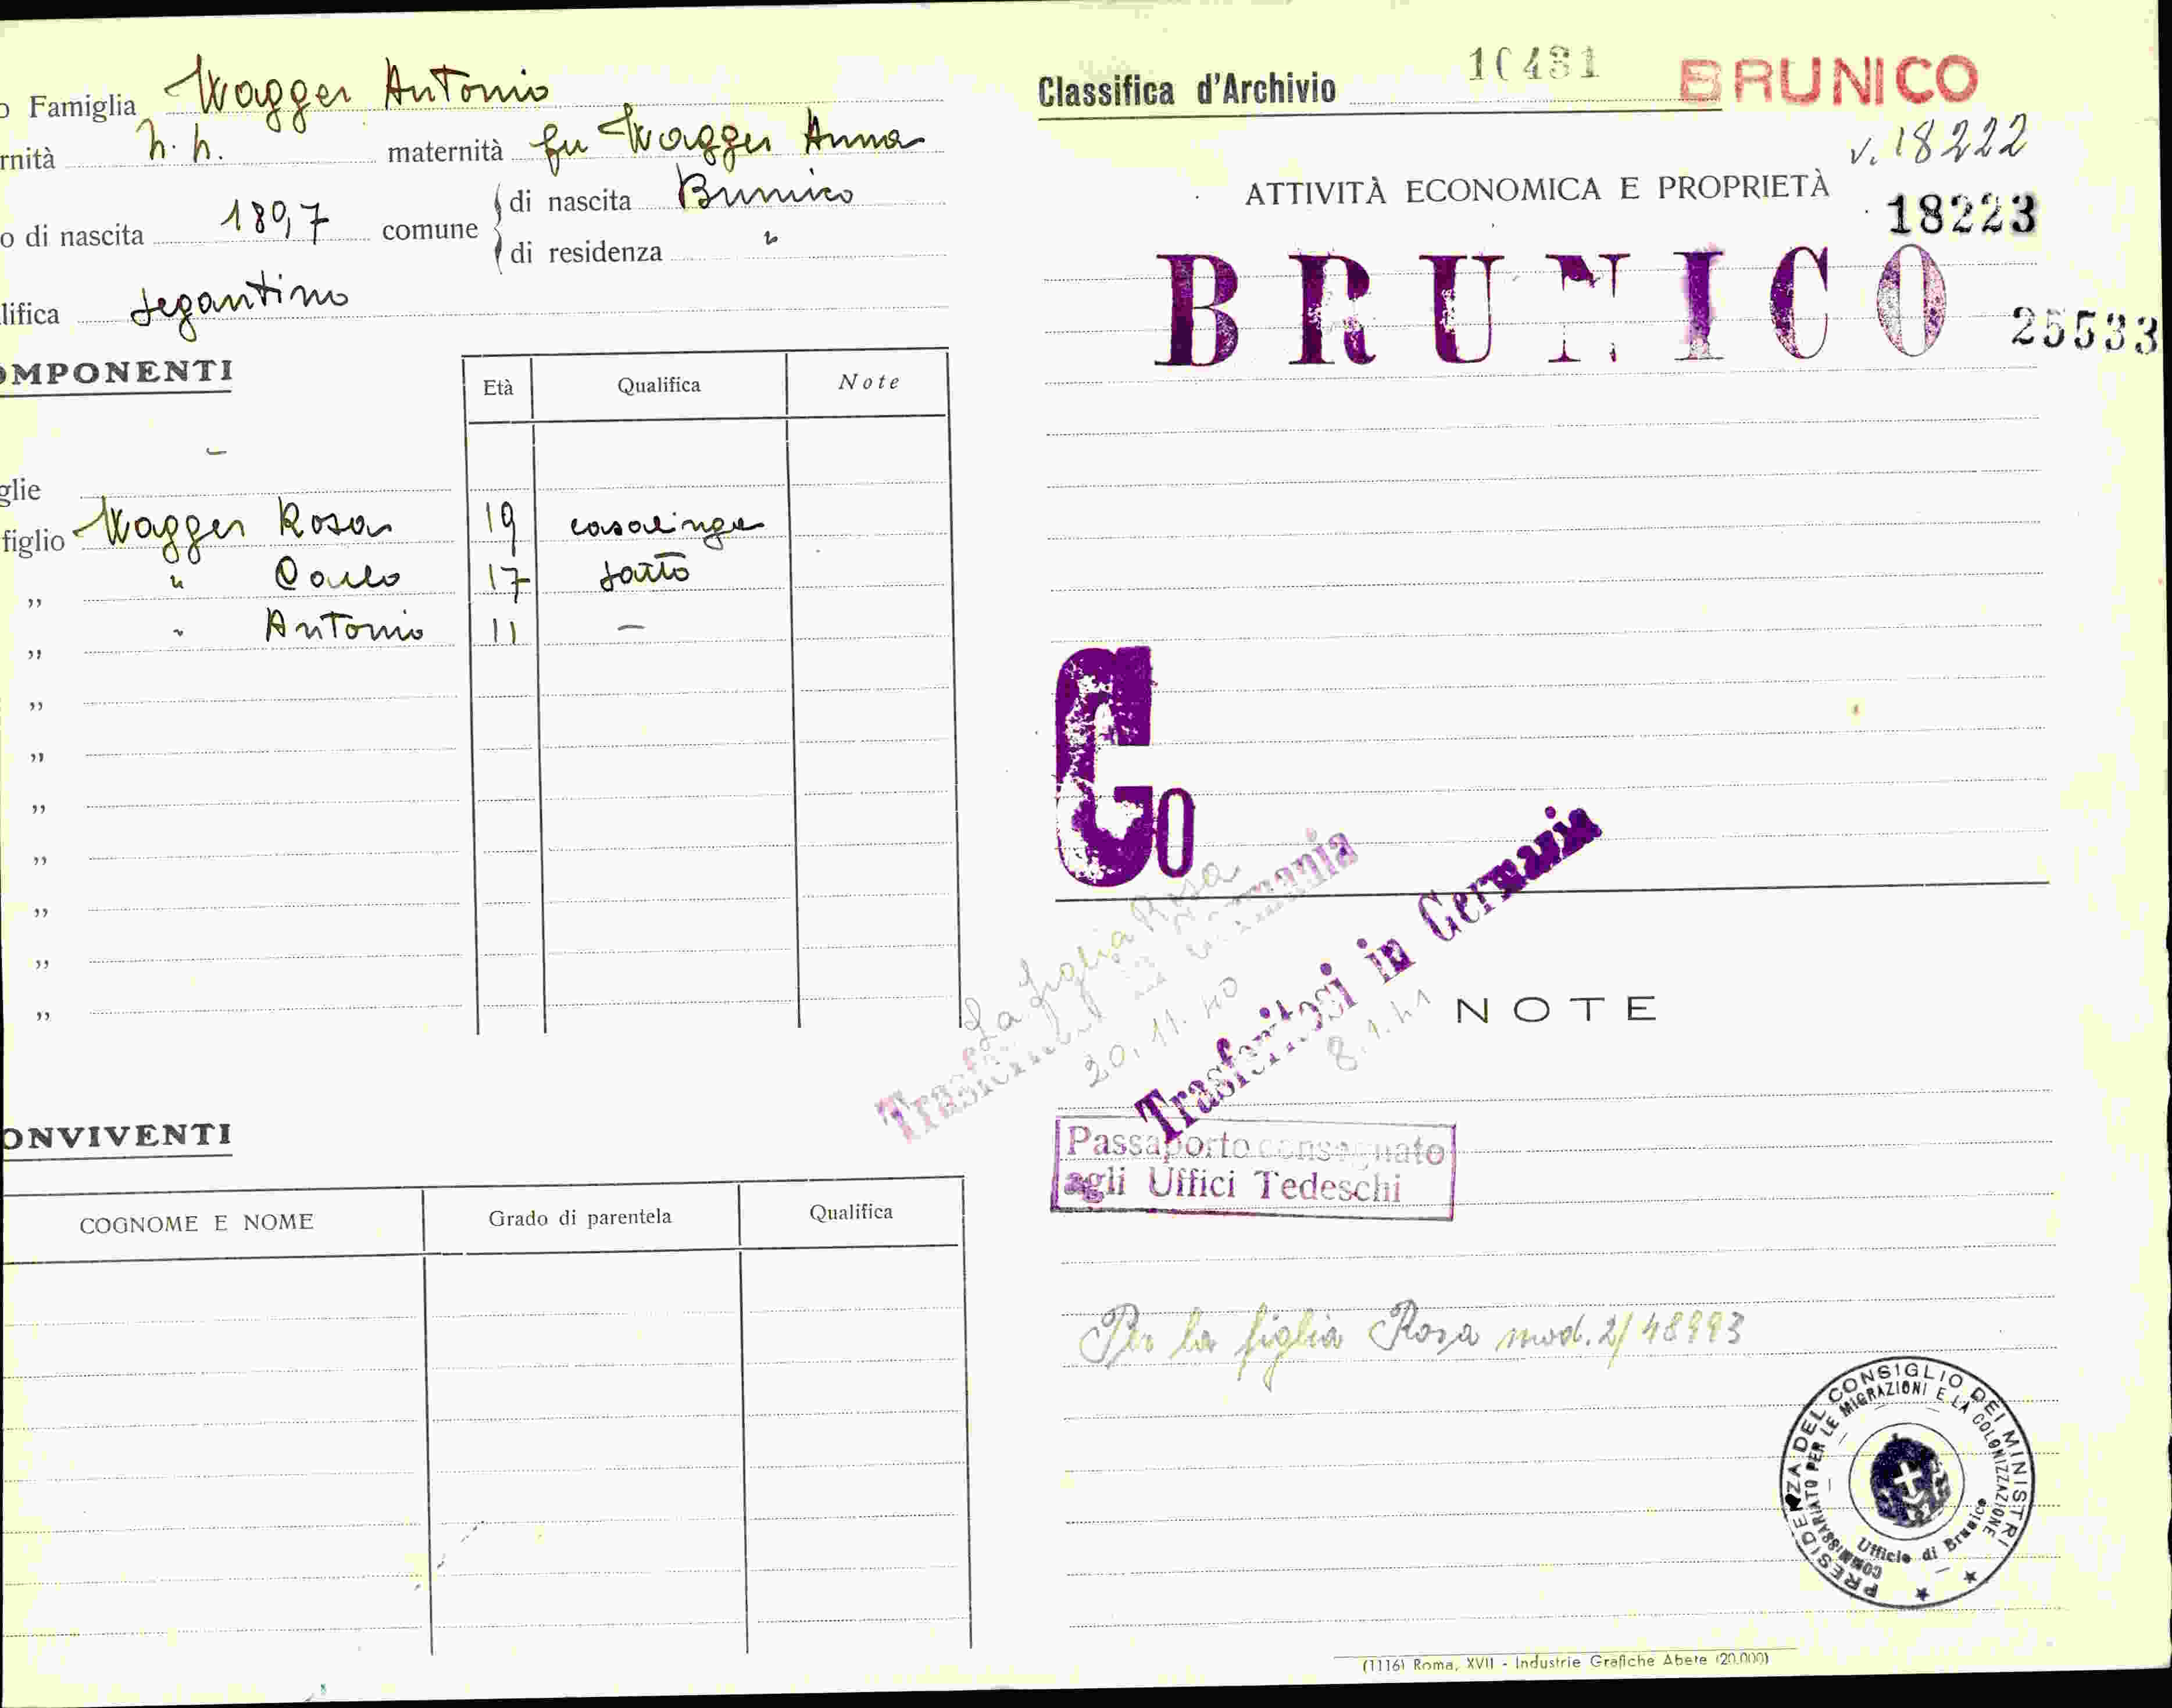 o Famiglia Wagger Antonio
rnità n. n. maternità fu Wagger Anna
o di nascita 1897 comune di nascita Brunico
di residenza "
lifica segantino
OMPONENTI
Età Qualifica Note
glie -
figlio Wagger Rosa 19 casalinga
" " Carlo 17 sarto
" " Antonio 11 -
"
"
"
"
"
"
"
ONVIVENTI
COGNOME E NOME Grado di parentela Qualifica
Classifica d'Archivio 10481 BRUNICO
v. 18222
ATTIVITÀ ECONOMICA E PROPRIETÀ
18223
BRUNICO
25533
Go
La figlia Rosa
20.11.40
Trasferitosi in Germania
8.1.41
NOTE
Passaporto consegnato
agli Uffici Tedeschi
Per la figlia Rosa mod. 2/48993
PRESIDENZA DEL CONSIGLIO DEI MINISTRI
COMMISSARIATO PER LE MIGRAZIONI E LA COLONIZZAZIONE
Ufficio di Brunico
(1116) Roma, XVII - Industrie Grafiche Abete (20.000)